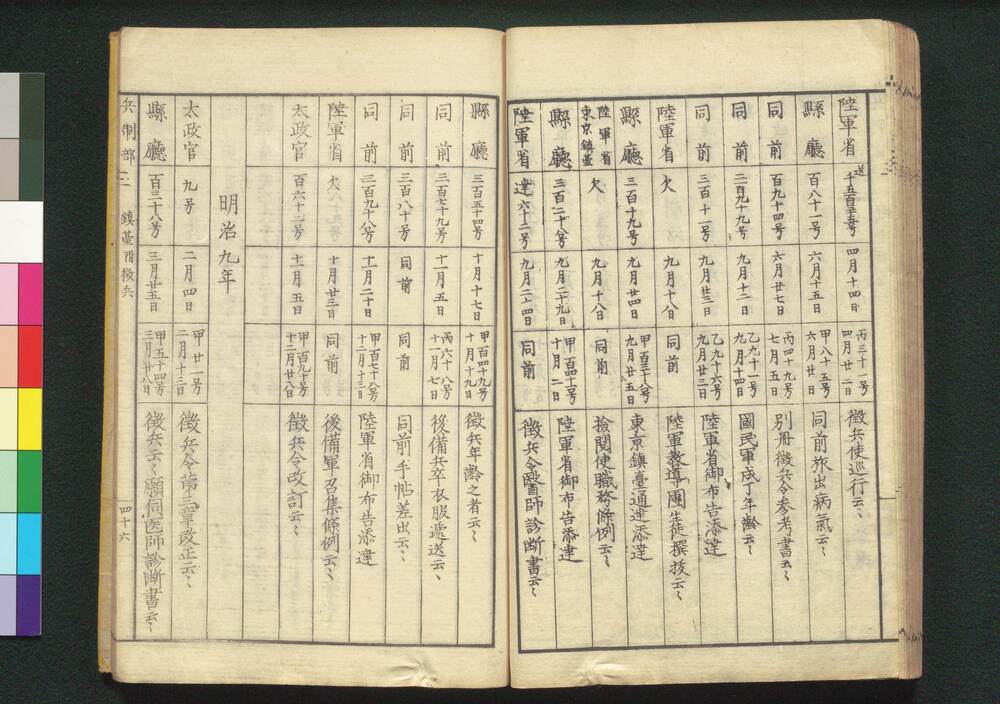 陸軍省 送 千五百三十五号 四月十四日 丙三十一号 四月廿二日 徴兵使巡行云〻
縣廳 百八十一号 六月十五日 甲八十五号 六月廿日 同前旅出病氣云〻
同前 百九十四号 六月廿七日 丙四十九号 七月五日 別冊徴兵令参考書云〻
同前 二百九十九号 九月十二日 乙九十一号 九月十四日 國民軍成丁年齢云〻
同前 三百十一号 九月廿三日 乙九十六号 九月廿三日 陸軍省御布告添達
陸軍省 欠 九月十八日 同前 陸軍教導團生徒撰抜云〻
縣廳 三百十九号 九月廿四日 甲百三十八号 九月廿五日 東京鎮臺通達添達
陸軍省 東京鎮臺 欠 九月十八日 同前 撿閲使職務條例云〻
縣廳 三百二十八号 九月二十九日 甲百四十号 十月二日 陸軍省御布告添達
陸軍省 達六十二号 九月二十四日 同前 徴兵令醫師診断書云〻
縣廳 三百五十四号 十月十七日 甲百四十九号 十月十九日 徴兵年齢之者云〻
同前 三百七十九号 十一月五日 丙六十八号 十一月七日 後備兵卒衣服遞送云〻
同前 三百八十号 同前 同前 同前手帖差出云〻
同前 三百九十八号 十一月二十日 甲百七十八号 十二月十三日 陸軍省御布告添達
陸軍省 欠 十月廿三日 同前 後備軍召集條例云〻
太政官 百六十二号 十一月五日 甲百九十号 十二月廿八日 徴兵令改訂云〻
明治九年
太政官 九号 二月四日 甲廿一号 二月十三日 徴兵令第三章改正云〻
縣廳 百三十八号 三月廿五日 甲五十四号 三月廿八日 徴兵云〻願伺医師診断書云〻
兵制部 二 鎮臺附徴兵 四十六